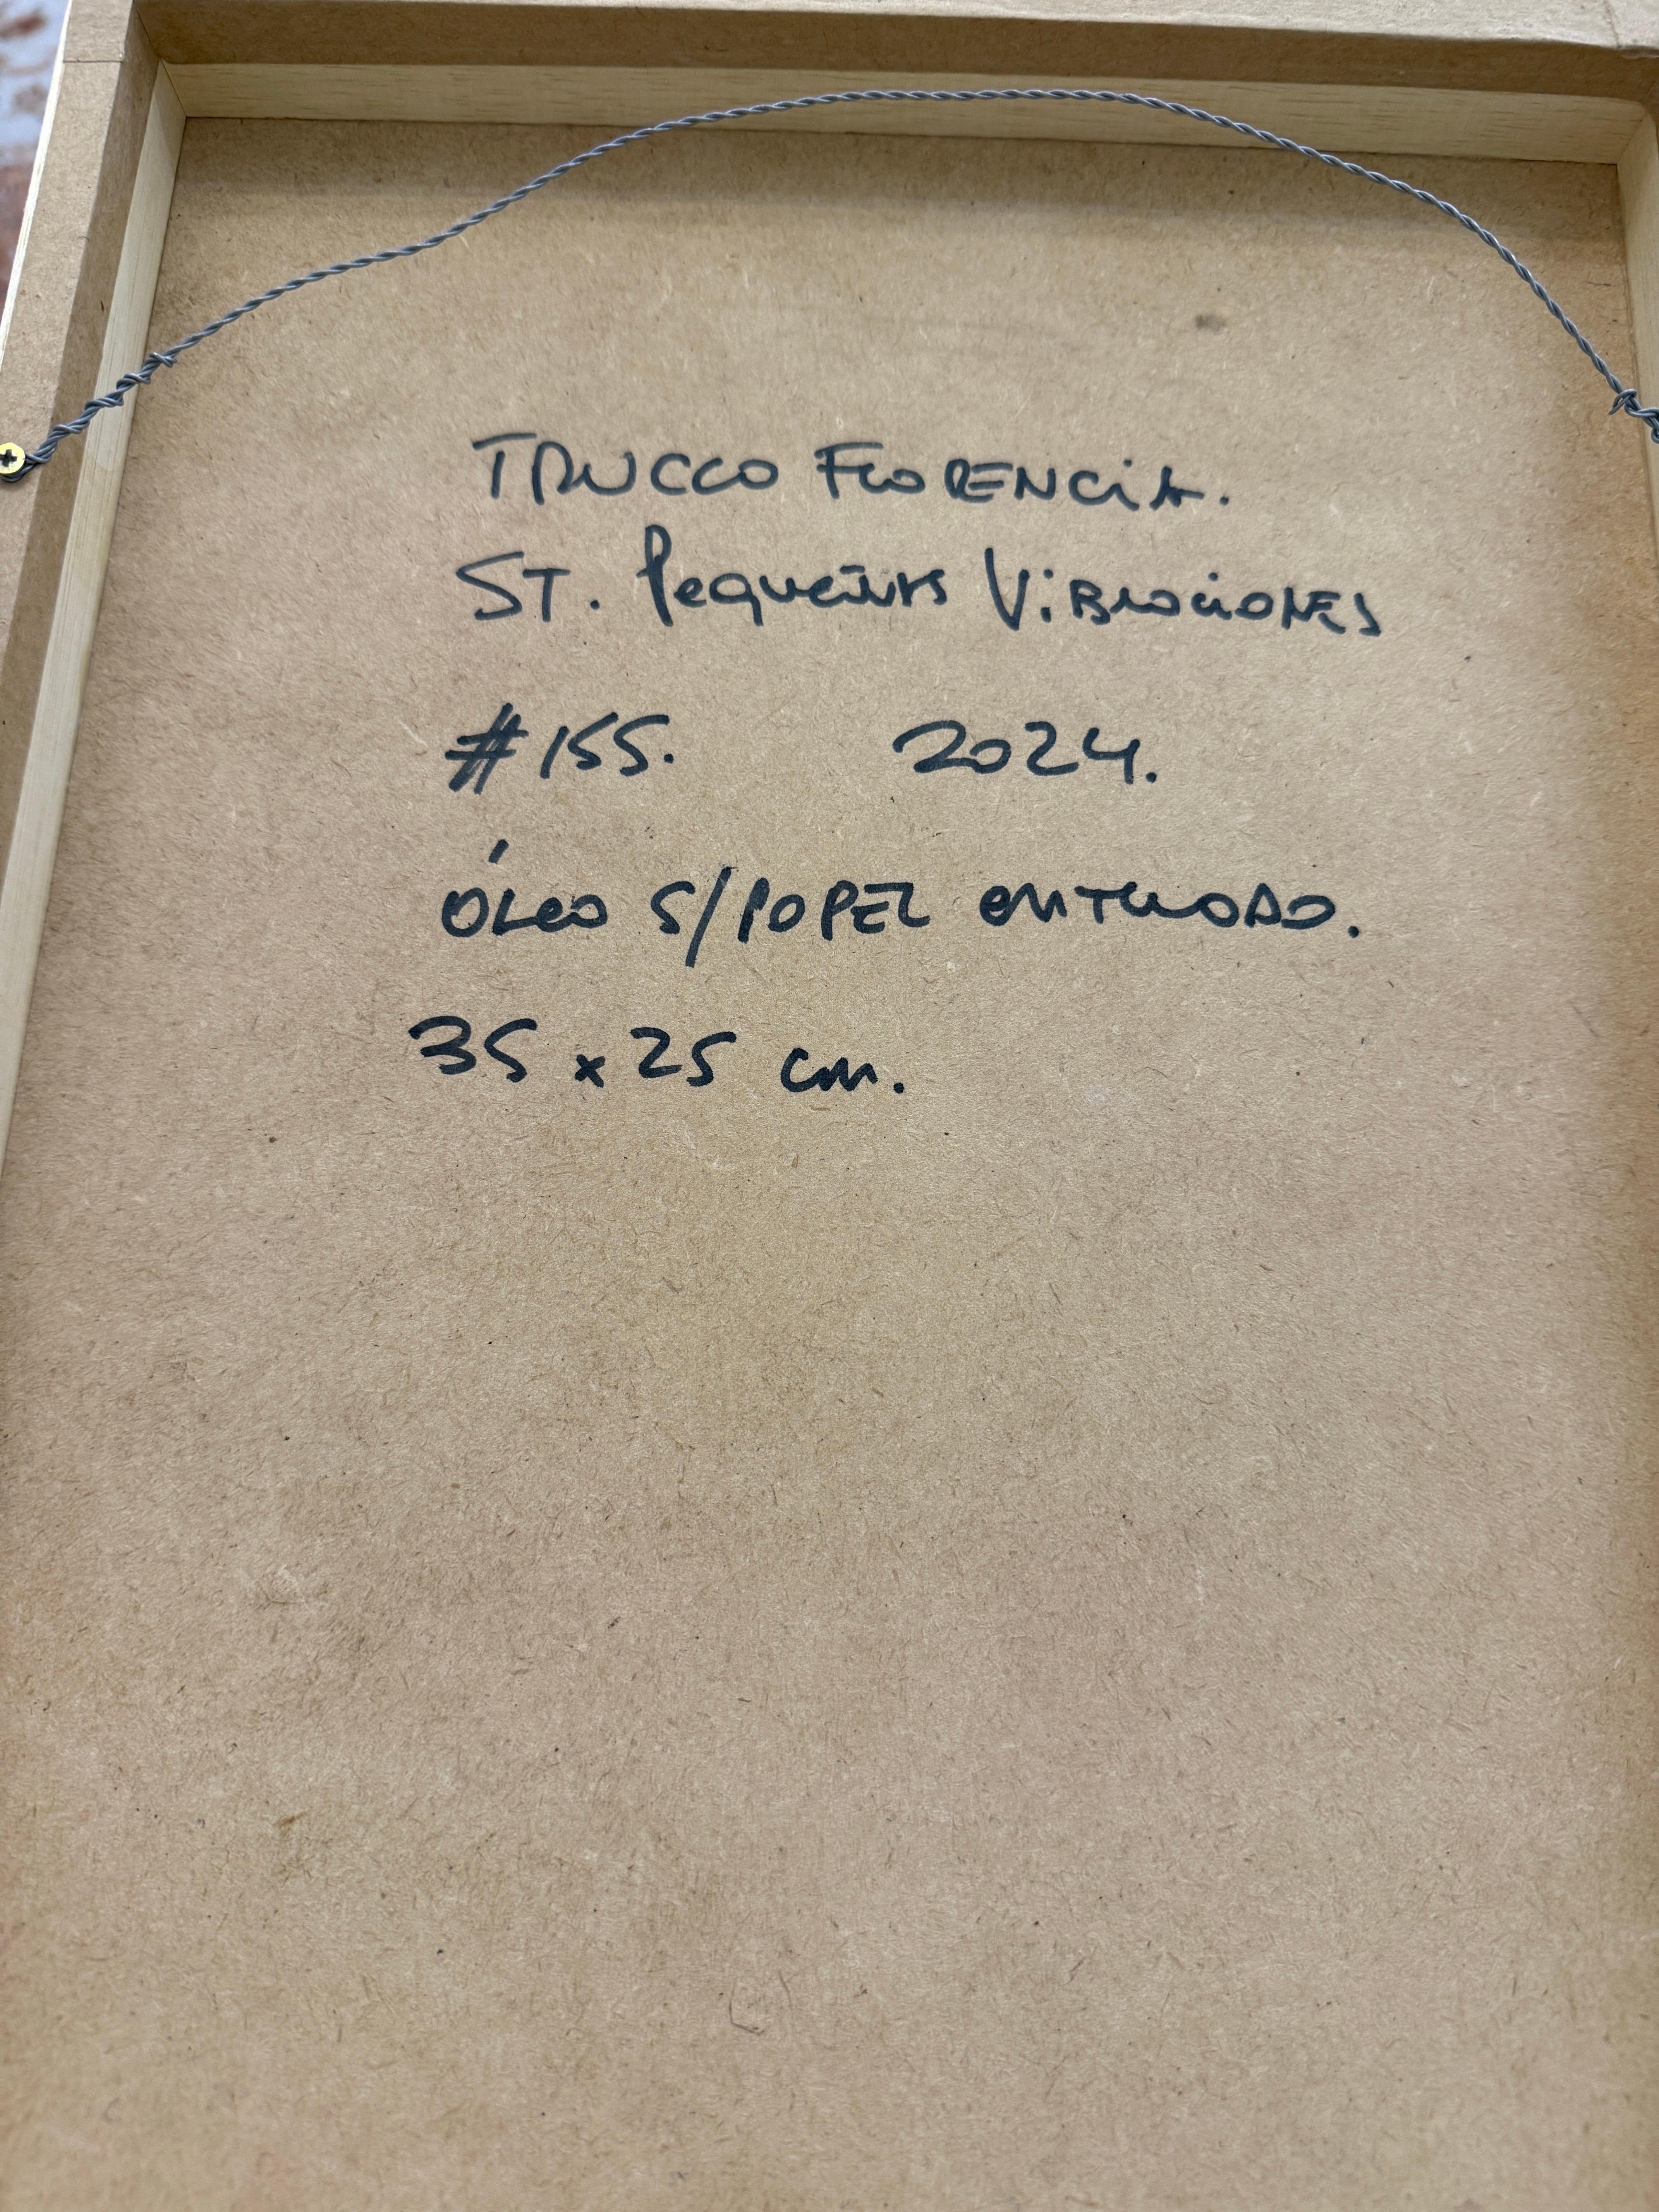 TRUCCO FLORENCIA.
ST. Pequeñas ViBRACIONES
#155. 2024.
ÓLeo S/PAPEL ENTELADO.
35 x 25 cm.